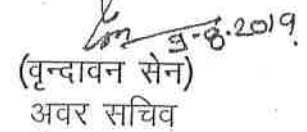 9-8.2019.
(वृन्दावन सेन)
अवर सचिव